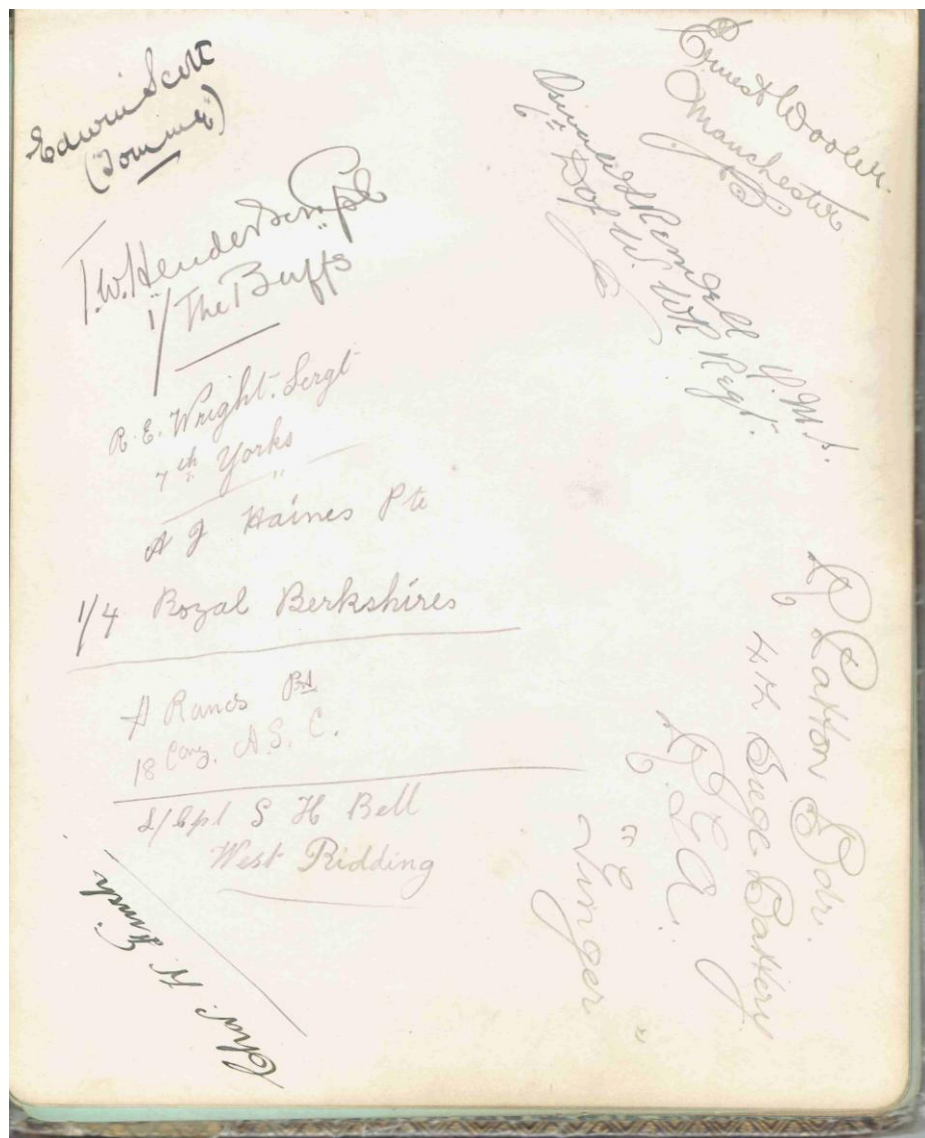 Edwin Scott
(Tommy)
T.W. Henderson Cpl
1/ The Buffs
R. E. Wright. Sergt
7th Yorks
A J Haines Pte
1/4 Royal Berkshires
A Rance
18 Coy. A. S. C.
L/Cpl S H Bell
West Ridding
Chas. H.
Ernest Woolen.
Manchester
Rendell
6th D of W. W R Regt.
R Catton Bdr.
4th Siege Battery
R. G. A.
"Ginger"